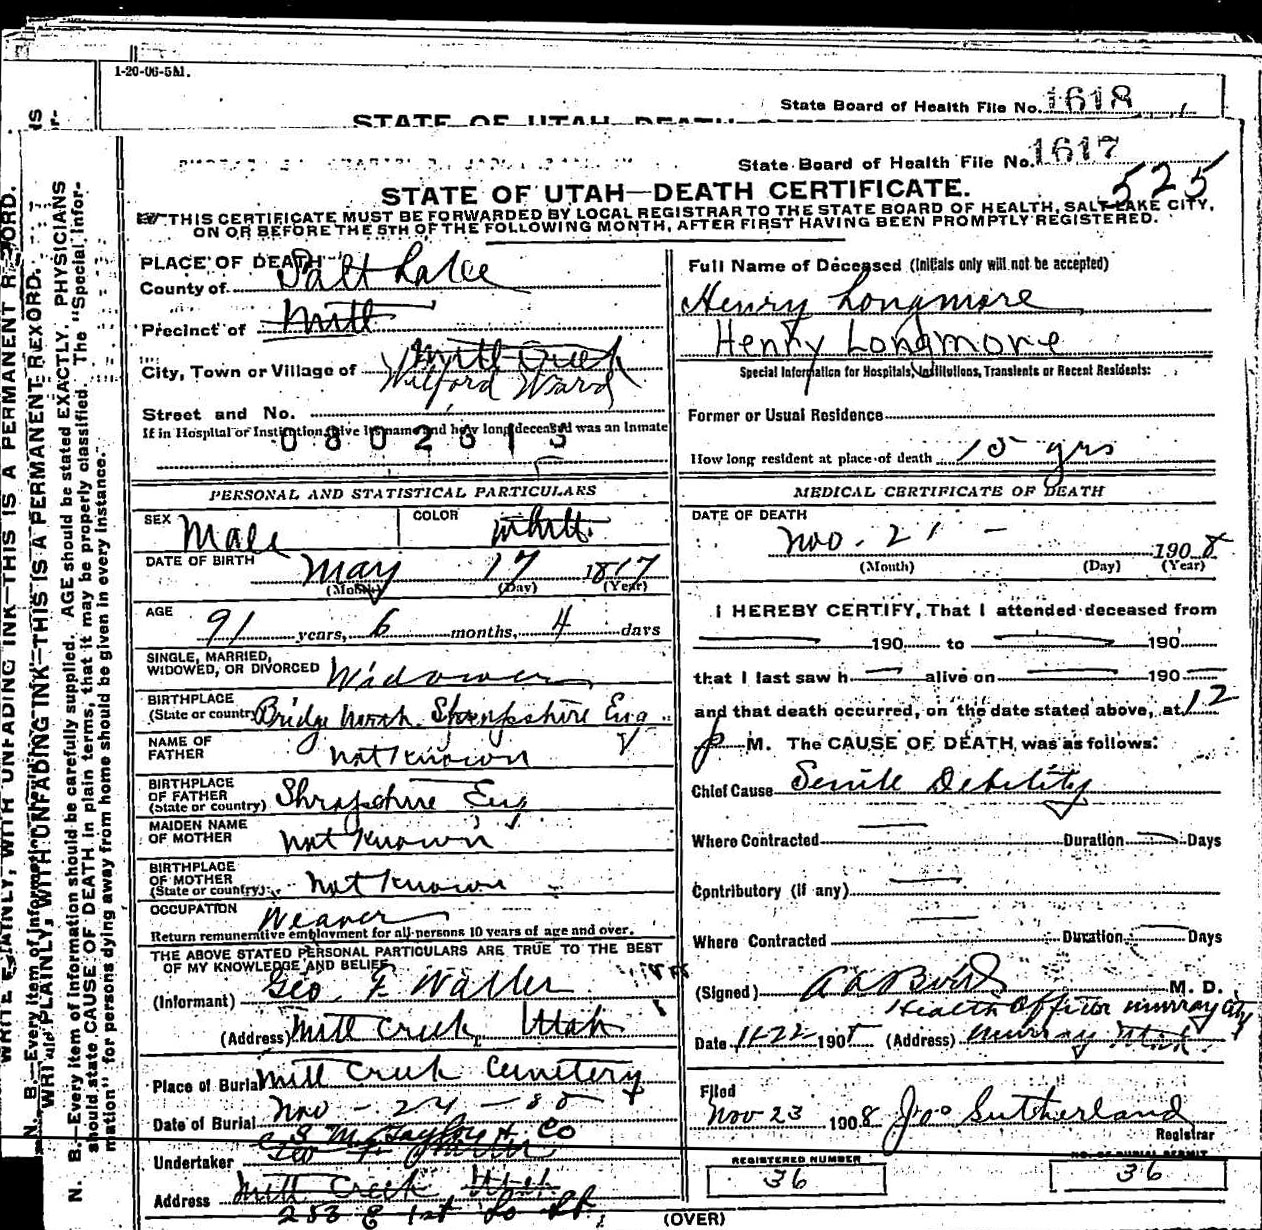 1-20-06-5M.
State Board of Health File No. 1618
STATE OF UTAH—DEATH
State Board of Health File No. 1617
525
STATE OF UTAH—DEATH CERTIFICATE.
THIS CERTIFICATE MUST BE FORWARDED BY LOCAL REGISTRAR TO THE STATE BOARD OF HEALTH, SALT LAKE CITY,
ON OR BEFORE THE 5TH OF THE FOLLOWING MONTH, AFTER FIRST HAVING BEEN PROMPTLY REGISTERED.
PLACE OF DEATH
County of Salt Lake
Precinct of Mill
City, Town or Village of Mill Creek
Wilford Ward
Street and No.
If in Hospital or Institution, give its name and how long deceased was an Inmate
0802615
Full Name of Deceased (Initials only will not be accepted)
Henry Longmore
Henry Longmore
Special Information for Hospitals, Institutions, Transients or Recent Residents:
Former or Usual Residence
How long resident at place of death 15 yrs
PERSONAL AND STATISTICAL PARTICULARS
SEX Male COLOR white
DATE OF BIRTH May 17 1817
(Month) (Day) (Year)
AGE 91 years, 6 months, 4 days
SINGLE, MARRIED,
WIDOWED, OR DIVORCED Widower
BIRTHPLACE
(State or country) Bridge North Shropshire Eng
NAME OF
FATHER not known
BIRTHPLACE
OF FATHER
(State or country) Shropshire Eng
MAIDEN NAME
OF MOTHER not known
BIRTHPLACE
OF MOTHER
(State or country) not known
OCCUPATION Weaver
Return remunerative employment for all persons 10 years of age and over.
THE ABOVE STATED PERSONAL PARTICULARS ARE TRUE TO THE BEST
OF MY KNOWLEDGE AND BELIEF
(Informant) Geo F Waller
(Address) Mill Creek, Utah
Place of Burial Mill Creek Cemetery
Date of Burial Nov - 24 - 08
S M Taylor & Co
Undertaker Geo F
Address Mill Creek Utah
253 E 1st So St.
MEDICAL CERTIFICATE OF DEATH
DATE OF DEATH
Nov. 21 - 1908
(Month) (Day) (Year)
I HEREBY CERTIFY, That I attended deceased from
190 to 190
that I last saw h alive on 190
and that death occurred, on the date stated above, at 12
p M. The CAUSE OF DEATH was as follows:
Chief Cause Senile Debility
Where Contracted Duration Days
Contributory (if any)
Where Contracted Duration Days
(Signed) M. D.
Health Officer Murray City
Date 11-22 1908 (Address) Murray Utah
Filed
Nov 23 1908 Jno Sutherland
Registrar
REGISTERED NUMBER
36
NO. OF BURIAL PERMIT
36
(OVER)
WRITE PLAINLY, WITH UNFADING INK—THIS IS A PERMANENT RECORD.
N. B.—Every item of information should be carefully supplied. AGE should be stated EXACTLY. PHYSICIANS
should state CAUSE OF DEATH in plain terms, that it may be properly classified. The "Special Infor-
mation" for persons dying away from home should be given in every instance.